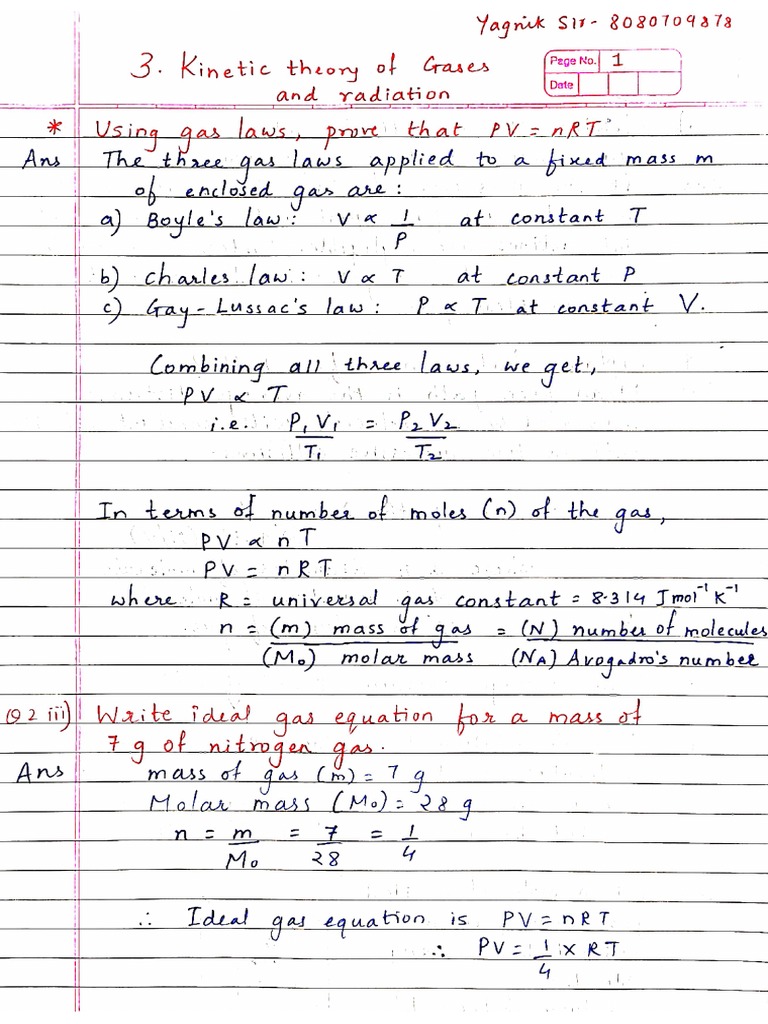 Yagnik Sir - 8080709878
3. Kinetic theory of Gases
and radiation
Page No. 1
Date
* Using gas laws, prove that PV = nRT.
Ans The three gas laws applied to a fixed mass m
of enclosed gas are :
a) Boyle's law : V ∝ 1/P at constant T
b) Charles law : V ∝ T at constant P
c) Gay-Lussac's law : P ∝ T at constant V.
Combining all three laws, we get,
PV ∝ T
i.e. P₁V₁/T₁ = P₂V₂/T₂
In terms of number of moles (n) of the gas,
PV ∝ nT
PV = nRT
where R = universal gas constant = 8.314 J mol⁻¹ K⁻¹
n = (m) mass of gas = (N) number of molecules
(M₀) molar mass (NA) Avogadro's number
Q2 iii) Write ideal gas equation for a mass of
7 g of nitrogen gas.
Ans mass of gas (m) = 7 g
Molar mass (M₀) = 28 g
n = m/M₀ = 7/28 = 1/4
∴ Ideal gas equation is PV = nRT
∴ PV = 1/4 × RT